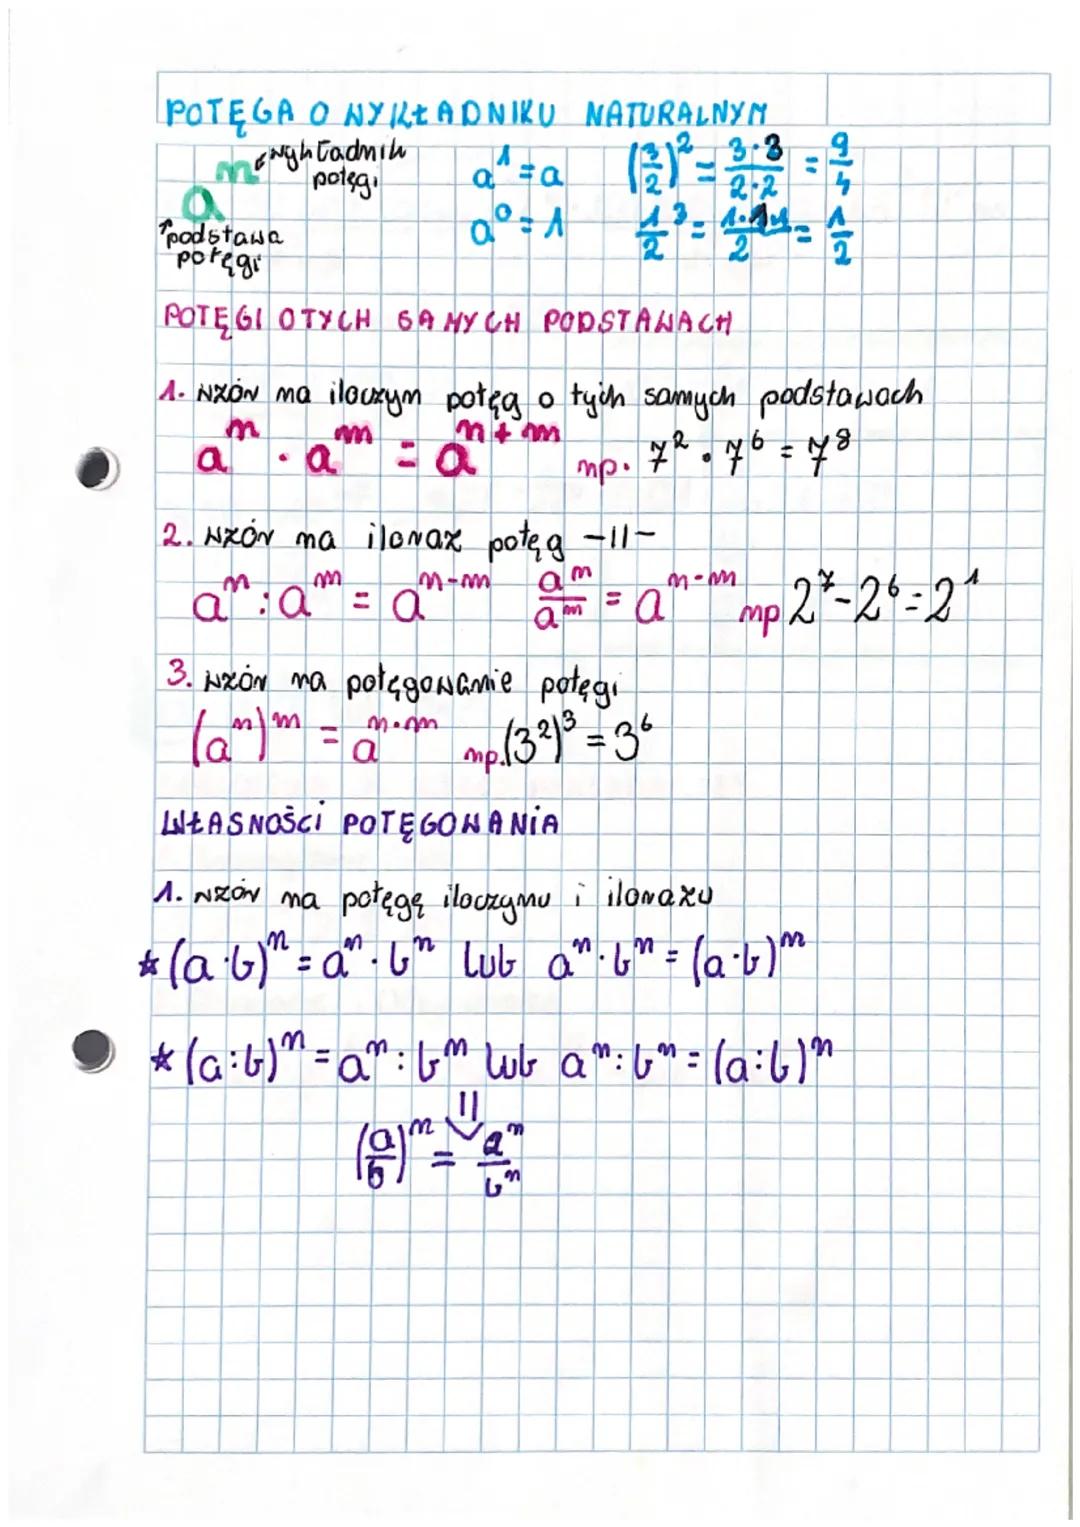 POTĘGA O WYKŁADNIKU NATURALNYM
aⁿ wykładnik potęgi
podstawa potęgi
a¹ = a (3/2)² = 3·3/2·2 = 9/4
a⁰ = 1 1³/2 = 1·1·1/2 = 1/2
POTĘGI O TYCH SAMYCH PODSTAWACH
1. wzór na iloczyn potęg o tych samych podstawach
aⁿ · aᵐ = aⁿ⁺ᵐ np. 7² · 7⁶ = 7⁸
2. wzór na iloraz potęg -11-
aⁿ : aᵐ = aⁿ⁻ᵐ aⁿ/aᵐ = aⁿ⁻ᵐ np 2⁷-2⁶=2¹
3. wzór na potęgowanie potęgi
(aⁿ)ᵐ = aⁿ·ᵐ np. (3²)³ = 3⁶
WŁASNOŚCI POTĘGOWANIA
1. wzór na potęgę iloczynu i ilorazu
* (a·b)ⁿ = aⁿ·bⁿ lub aⁿ·bⁿ = (a·b)ⁿ
* (a:b)ⁿ = aⁿ:bⁿ lub aⁿ:bⁿ = (a:b)ⁿ
(a/b)ⁿ = aⁿ/bⁿ